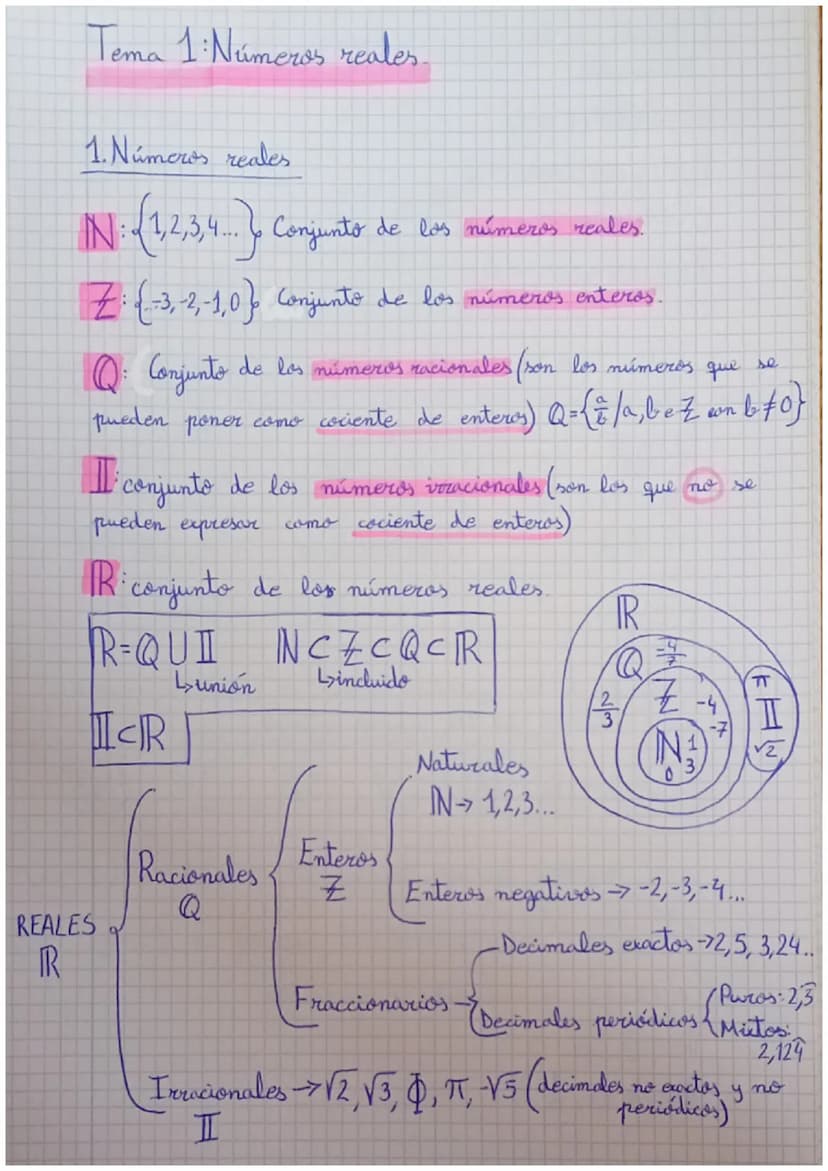 Tema 1: Números reales.
1. Números reales
ℕ: {1,2,3,4...} Conjunto de los números reales.
ℤ: {..-3,-2,-1,0} Conjunto de los números enteros.
ℚ: Conjunto de los números racionales (son los números que se
pueden poner como cociente de enteros) Q={a/b /a,b e ℤ con b≠0}
𝕀: conjunto de los números irracionales (son los que no se
pueden expresar como cociente de enteros)
ℝ: conjunto de los números reales.
ℝ=ℚ∪𝕀 ℕ⊂ℤ⊂ℚ⊂ℝ
↳unión ↳incluido
𝕀⊂ℝ
ℝ
ℚ -4/7
2/3 ℤ -4 -7
ℕ 1 0 3
π 𝕀 √2
Naturales
ℕ→ 1,2,3...
Enteros
ℤ
Racionales
ℚ
Enteros negativos → -2,-3,-4...
REALES
ℝ
Decimales exactos→2,5, 3,24..
Fraccionarios→
Decimales periódicos
Puros: 2,3̂
Mixtos:
2,124̂
Irracionales → √2, √3, Φ, π, -√5 (decimales no exactos y no
periódicos)
𝕀